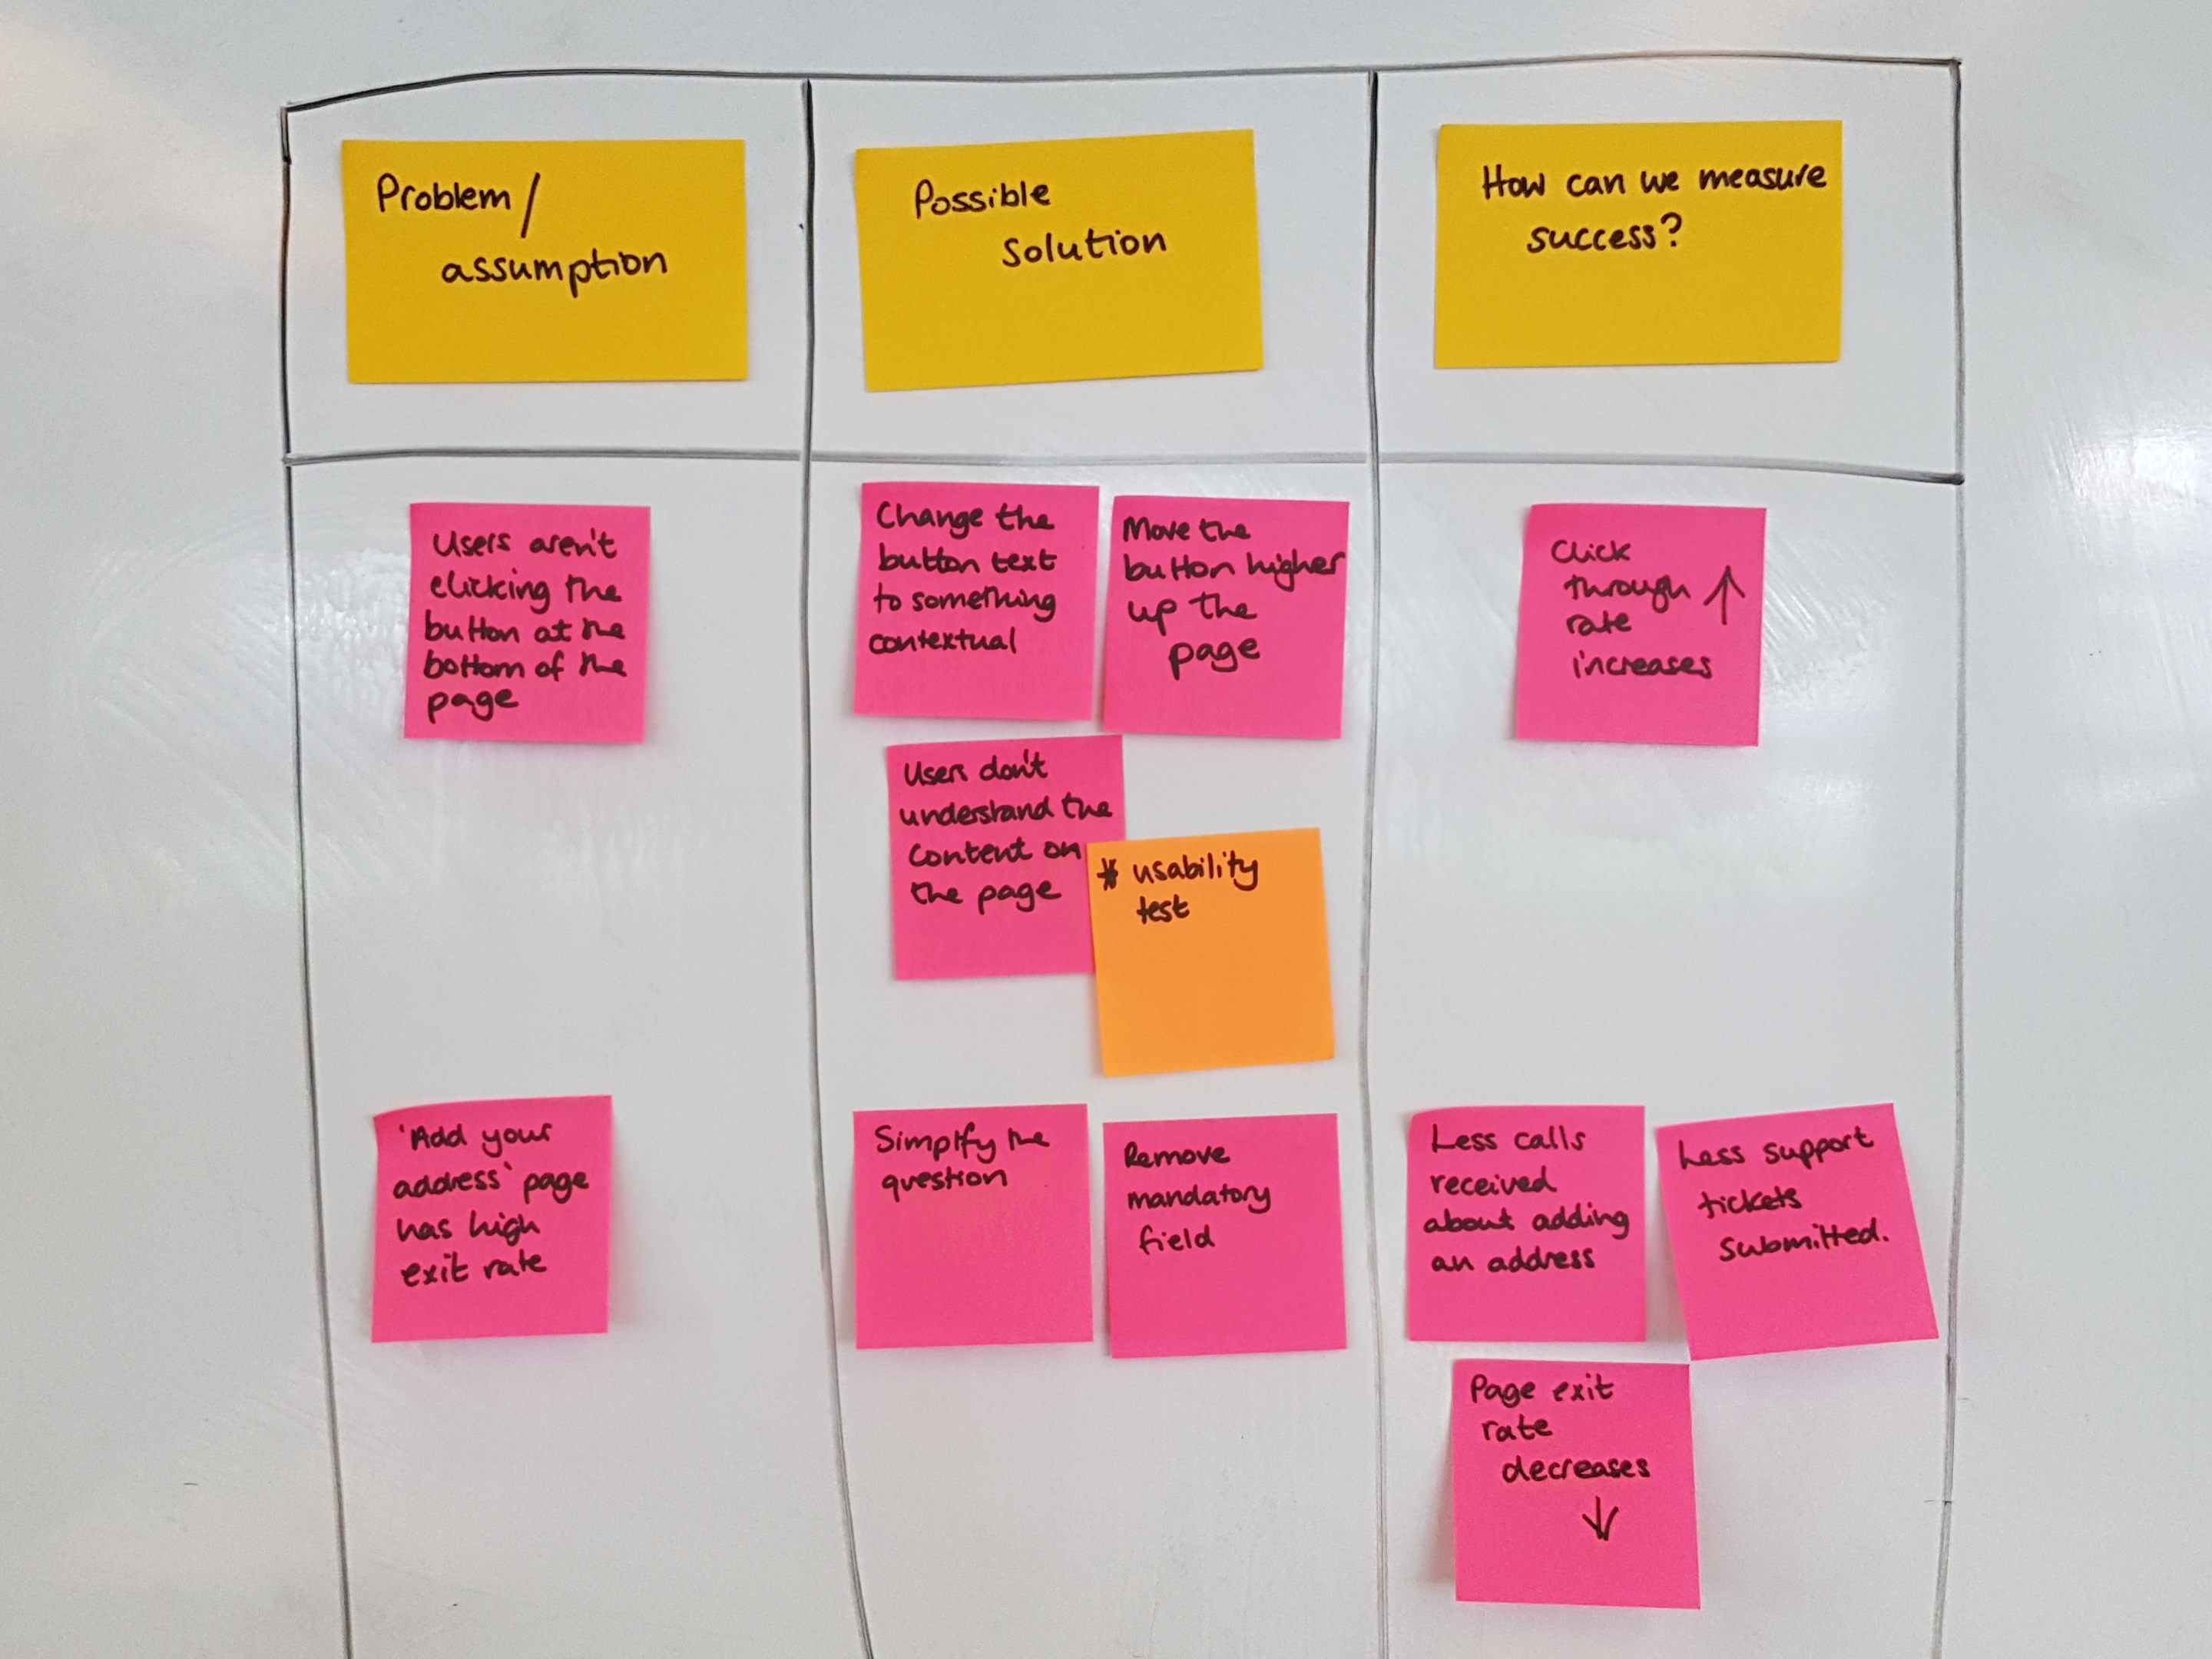 Problem /
assumption
Possible
solution
How can we measure
success?
Users aren't
clicking the
button at the
bottom of the
page
Change the
button text
to something
contextual
Move the
button higher
up the
page
Users don't
understand the
content on
the page
* usability
test
Click
through ↑
rate
increases
'Add your
address' page
has high
exit rate
Simplify the
question
Remove
mandatory
field
Less calls
received
about adding
an address
Less support
tickets
submitted.
Page exit
rate
decreases
↓